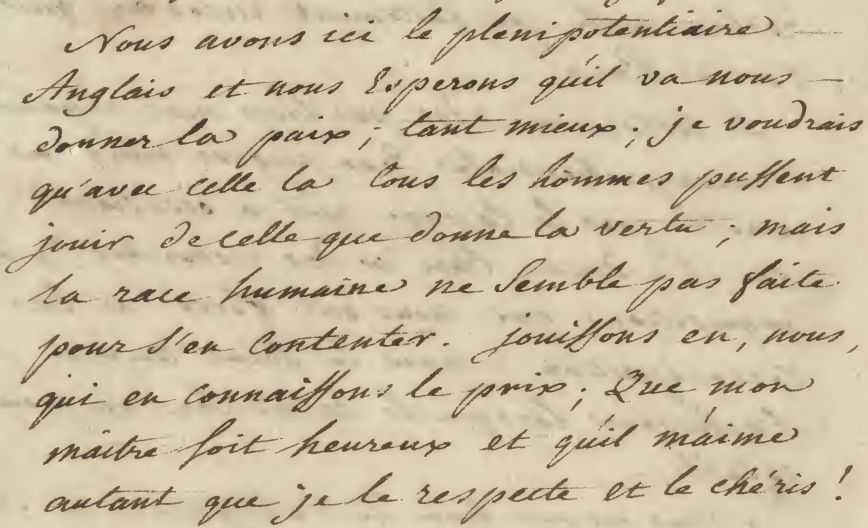 Nous avons ici le plenipotentiaire
Anglais et nous Esperons qu'il va nous
donner la paix; tant mieux; je voudrais
qu'avec celle la tous les hommes pussent
jouir de celle que donne la vertu; mais
la race humaine ne Semble pas faite
pour S'en Contenter. jouissons en, nous,
qui en Connaissons le prix; Que mon
maitre soit heureux et qu'il m'aime
autant que je le respecte et le chéris!